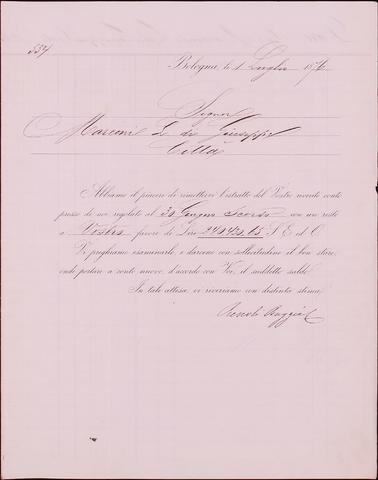 Bologna, li 1 Luglio 187
Signor
Marconi L. di Giuseppe
Città
Abbiamo il piacere di rimettervi l'estratto del Vostro accordo conto
presso di noi regolato al 30 Giugno Scorso con un resto
a Vostro favore di Lire S. E. ed O.
Vi preghiamo esaminarlo e darcene con sollecitudine il ben stare,
onde portare a conto nuovo, d'accordo con Voi, il suddetto saldo.
In tale attesa, vi riveriamo con distinta stima.